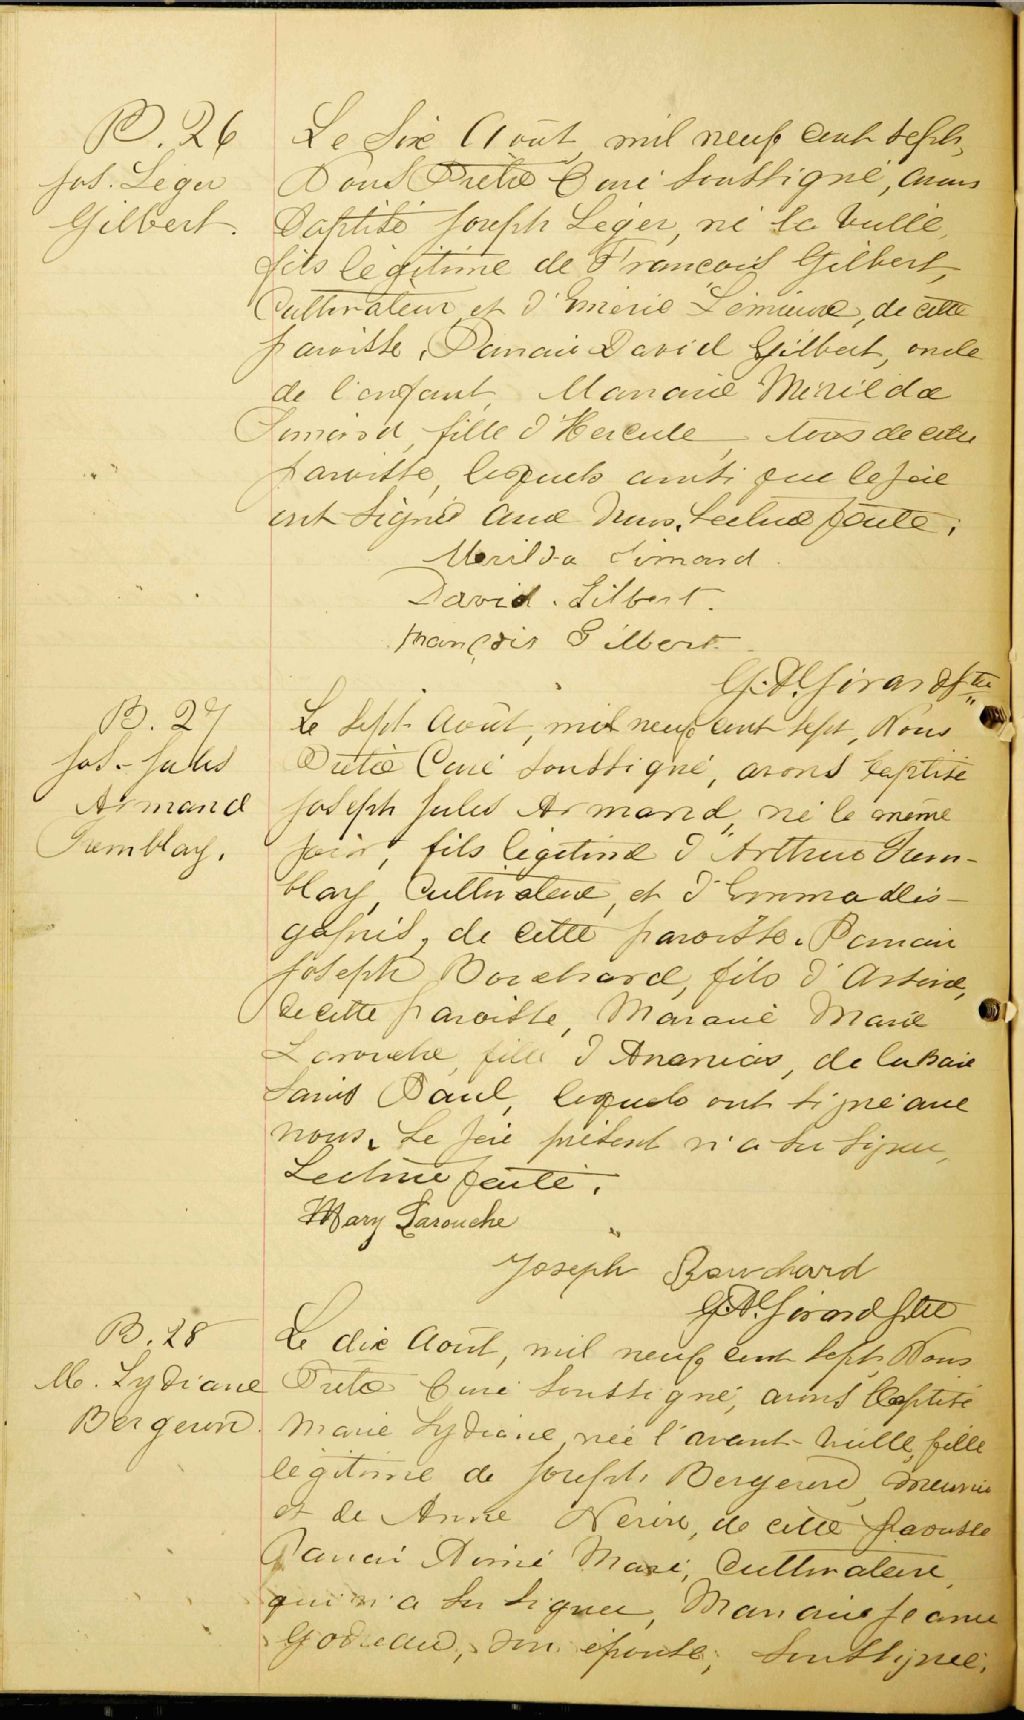 B. 26
Jos. Léger
Gilbert.
Le Six Août, mil neuf cent sept,
Nous Prêtre Curé soussigné, avons
baptisé Joseph Léger, né la veille,
fils légitime de François Gilbert,
Cultivateur, et d'Emérie Lemieux, de cette
paroisse. Parrain David Gilbert, oncle
de l'enfant, Marraine Mérilda
Simard, fille d'Hercule, tous de cette
paroisse, lesquels ainsi que le père
ont signé avec nous. Lecture faite.
Merilda Simard
David. Gilbert.
François Gilbert
G. A. Girard Ptre
B. 27
Jos-Jules
Armand
Tremblay.
Le Sept Août, mil neuf cent sept, Nous
Prêtre Curé soussigné, avons baptisé
Joseph Jules Armand, né le même
jour, fils légitime d'Arthur Trem-
blay, Cultivateur, et d'Emma Des-
gagnés, de cette paroisse. Parrain
Joseph Bouchard, fils d'Arsène,
de cette paroisse, Marraine Marie
Larouche, fille d'Ananias, de la Baie
Saint Paul, lesquels ont signé avec
nous. Le père présent n'a su signer,
Lecture faite.
Mary Larouche
Joseph Bouchard
G. A. Girard Ptre
B. 28
M. Lydiane
Bergeron.
Le dix Août, mil neuf cent sept, Nous
Prêtre Curé soussigné, avons baptisé
Marie Lydiane, née l'avant-veille, fille
légitime de Joseph Bergeron, meunier
et de Anne, de cette paroisse
Parrain Aimé, Cultivateur,
qui n'a su signer, Marraine Jeanne
Godreau, son épouse, soussignée.